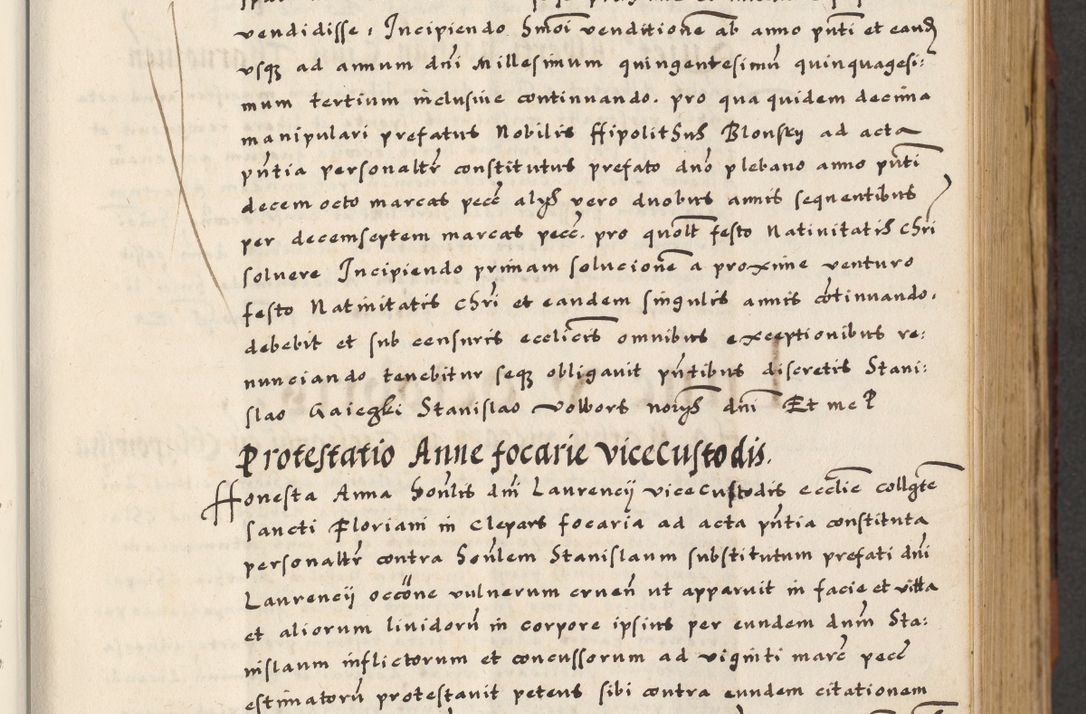 vendidisse, Incipiendo Smoi venditione ab anno pnti et eand
vsq ad annum dni Millesimum quingentesimu quinquagesi:
mum tertium inclusiue continuando. pro qua quidem decima
manipulari prefatus Nobilis Hipolithus Blonsky ad acta
pntia personaltr constitutus prefato dno plebano anno pnti
decem octo marcas pecc alys vero duobus annis sequentibus
per decemseptem marcas pecc. pro quolt festo Natiuitatis Chri
soluere Incipiendo primam solucione a proxime venturo
festo Natiuitatis Chri et eandem singulis annis cotinuando,
debebit et sub censuris ecclicis omnibus exceptionibus re:
nunciando tenebitur seq obligauit pntibus discretis Stani:
slao Gaiegki Stanislao Volbors norys dni Et me P
Protestatio Anne focarie viceCustodis.
Honesta Anna honlis dni Laurencij viceCustodis ecclie collgte
Sancti Floriani in Clepars focaria ad acta pntia constituta
personaltr contra honlem Stanislaum substitutum prefati dni
Laurencij occone vulnerum cruen ut apparuit in facie et vitta
et aliorum liuidoru in corpore ipsius per eundem dnm Sta:
nislaum inflictorum et concussorum ad viginti marc pecc
estimatoru protestauit petens sibi contra eundem citationem